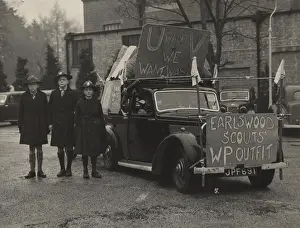 U
V
WE
WANT
EARLSWOOD
SCOUTS'
WP OUTFIT
JPF 691